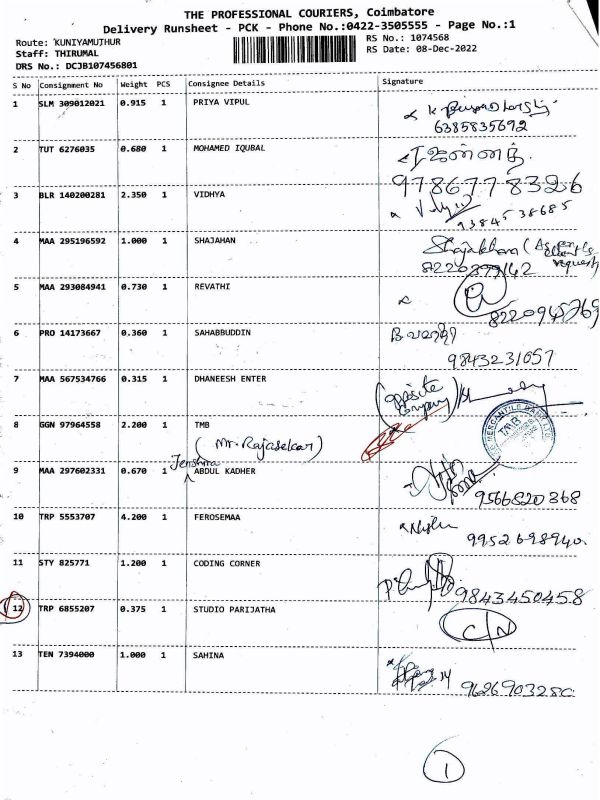 THE PROFESSIONAL COURIERS, Coimbatore
Delivery Runsheet - PCK - Phone No.:0422-3505555 - Page No.:1
Route: KUNIYAMUTHUR
Staff: THIRUMAL
DRS No.: DCJB107456801
RS No.: 1074568
RS Date: 08-Dec-2022
S No Consignment No Weight PCS Consignee Details Signature
1 SLM 309012021 0.915 1 PRIYA VIPUL
6385835692
2 TUT 6276035 0.680 1 MOHAMED IQUBAL
9786778326
3 BLR 140200281 2.350 1 VIDHYA
9384538685
4 MAA 295196592 1.000 1 SHAJAHAN
Shajakhan
request
5 MAA 293084941 0.730 1 REVATHI
6 PRO 14173667 0.360 1 SAHABBUDDIN
9843231057
7 MAA 567534766 0.315 1 DHANEESH ENTER
(opposite
company)
8 GGN 97964558 2.200 1 TMB
(Mr. Rajasekar)
Jenshira
9 MAA 297602331 0.670 1 ABDUL KADHER
9566820368
10 TRP 5553707 4.200 1 FEROSEMAA
9952698940
11 STY 825771 1.200 1 CODING CORNER
9843450458
12 TRP 6855207 0.375 1 STUDIO PARIJATHA
C/N
13 TEN 7394000 1.000 1 SAHINA
1